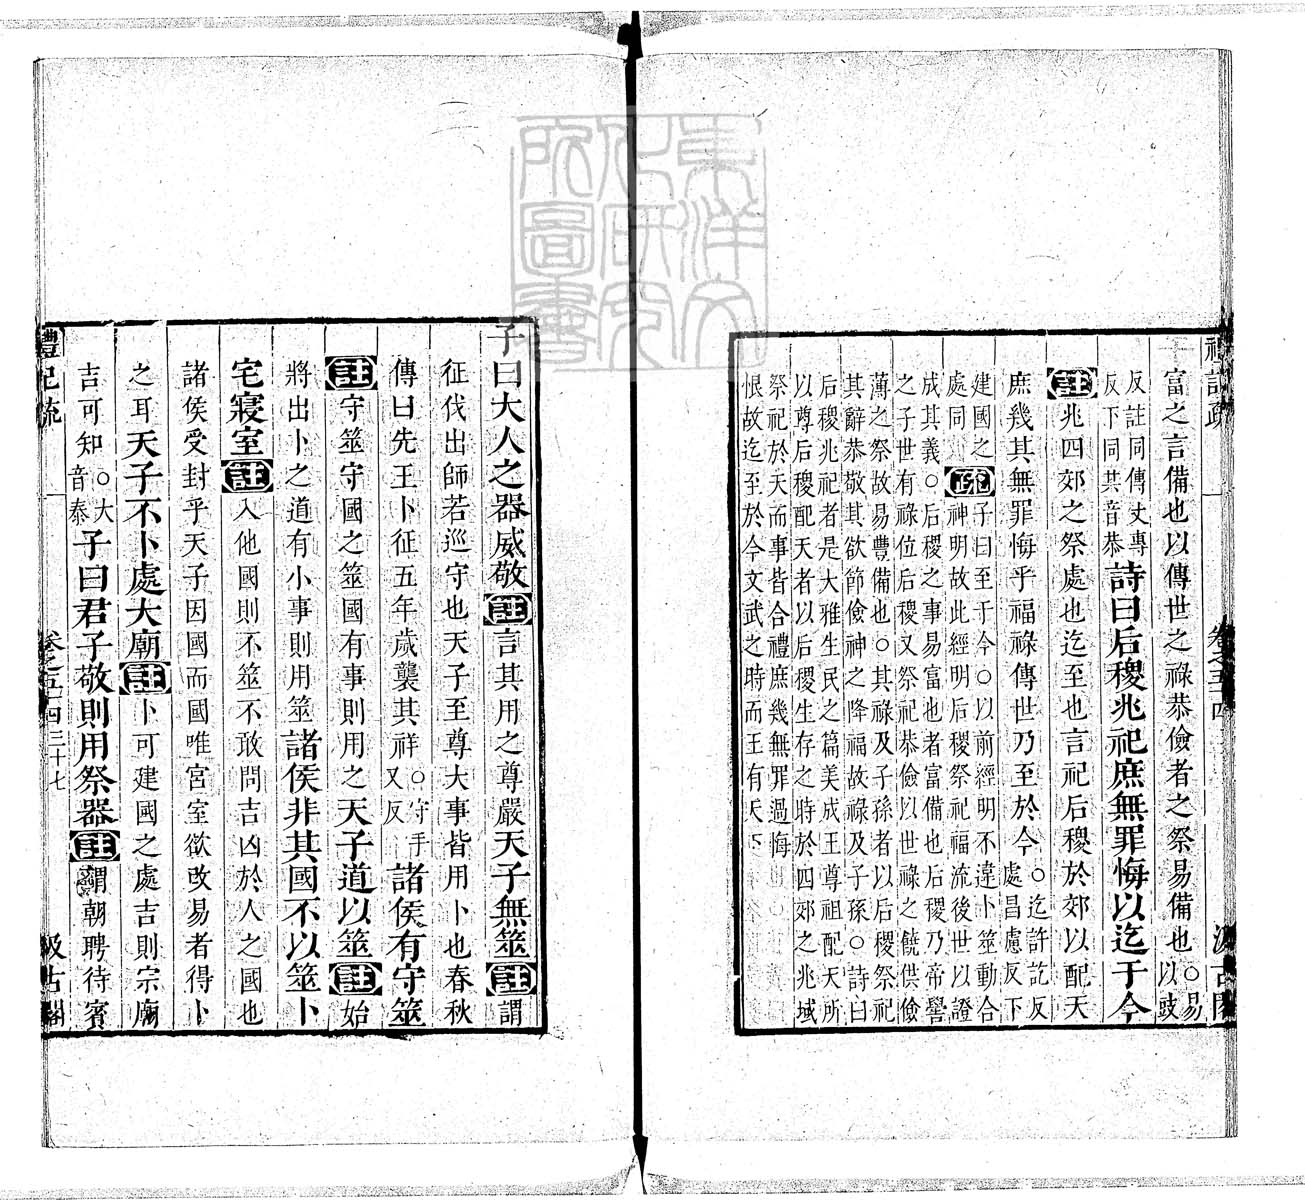 禮記疏 卷之五十四 汲古閣
富之言備也以傳世之祿恭儉者之祭易備也○易以豉
反註同傳丈專反下同共音恭詩曰后稷兆祀庶無罪悔以迄于今
註兆四郊之祭處也迄至也言祀后稷於郊以配天
庶幾其無罪悔乎福祿傳世乃至於今○迄許訖反處昌慮反下
建國之處同疏子曰至于今○以前經明不違卜筮動合
神明故此經明后稷祭祀福流後世以證
成其義○后稷之事易富也者富備也后稷乃帝嚳
之子世有祿位后稷又祭祀恭儉以世祿之饒供儉
薄之祭故易豐備也○其祿及子孫者以后稷祭祀
其辭恭敬其欲節儉神之降福故祿及子孫○詩曰
后稷兆祀者是大雅生民之篇美成王尊祖配天所
以尊后稷配天者以后稷生存之時於四郊之兆域
祭祀於天而事皆合禮庶幾無罪過悔
恨故迄至於今文武之時而王有天下
子曰大人之器威敬註言其用之尊嚴天子無筮註謂
征伐出師若巡守也天子至尊大事皆用卜也春秋
傳曰先王卜征五年歲襲其祥○守手又反諸侯有守筮
註守筮守國之筮國有事則用之天子道以筮註始
將出卜之道有小事則用筮諸侯非其國不以筮卜
宅寢室註入他國則不筮不敢問吉凶於人之國也
諸侯受封乎天子因國而國唯宮室欲改易者得卜
之耳天子不卜處大廟註卜可建國之處吉則宗廟
吉可知○大音泰子曰君子敬則用祭器註謂朝聘待賓
禮記疏 卷之五十四 三十七 汲古閣
東洋文化研究所圖書